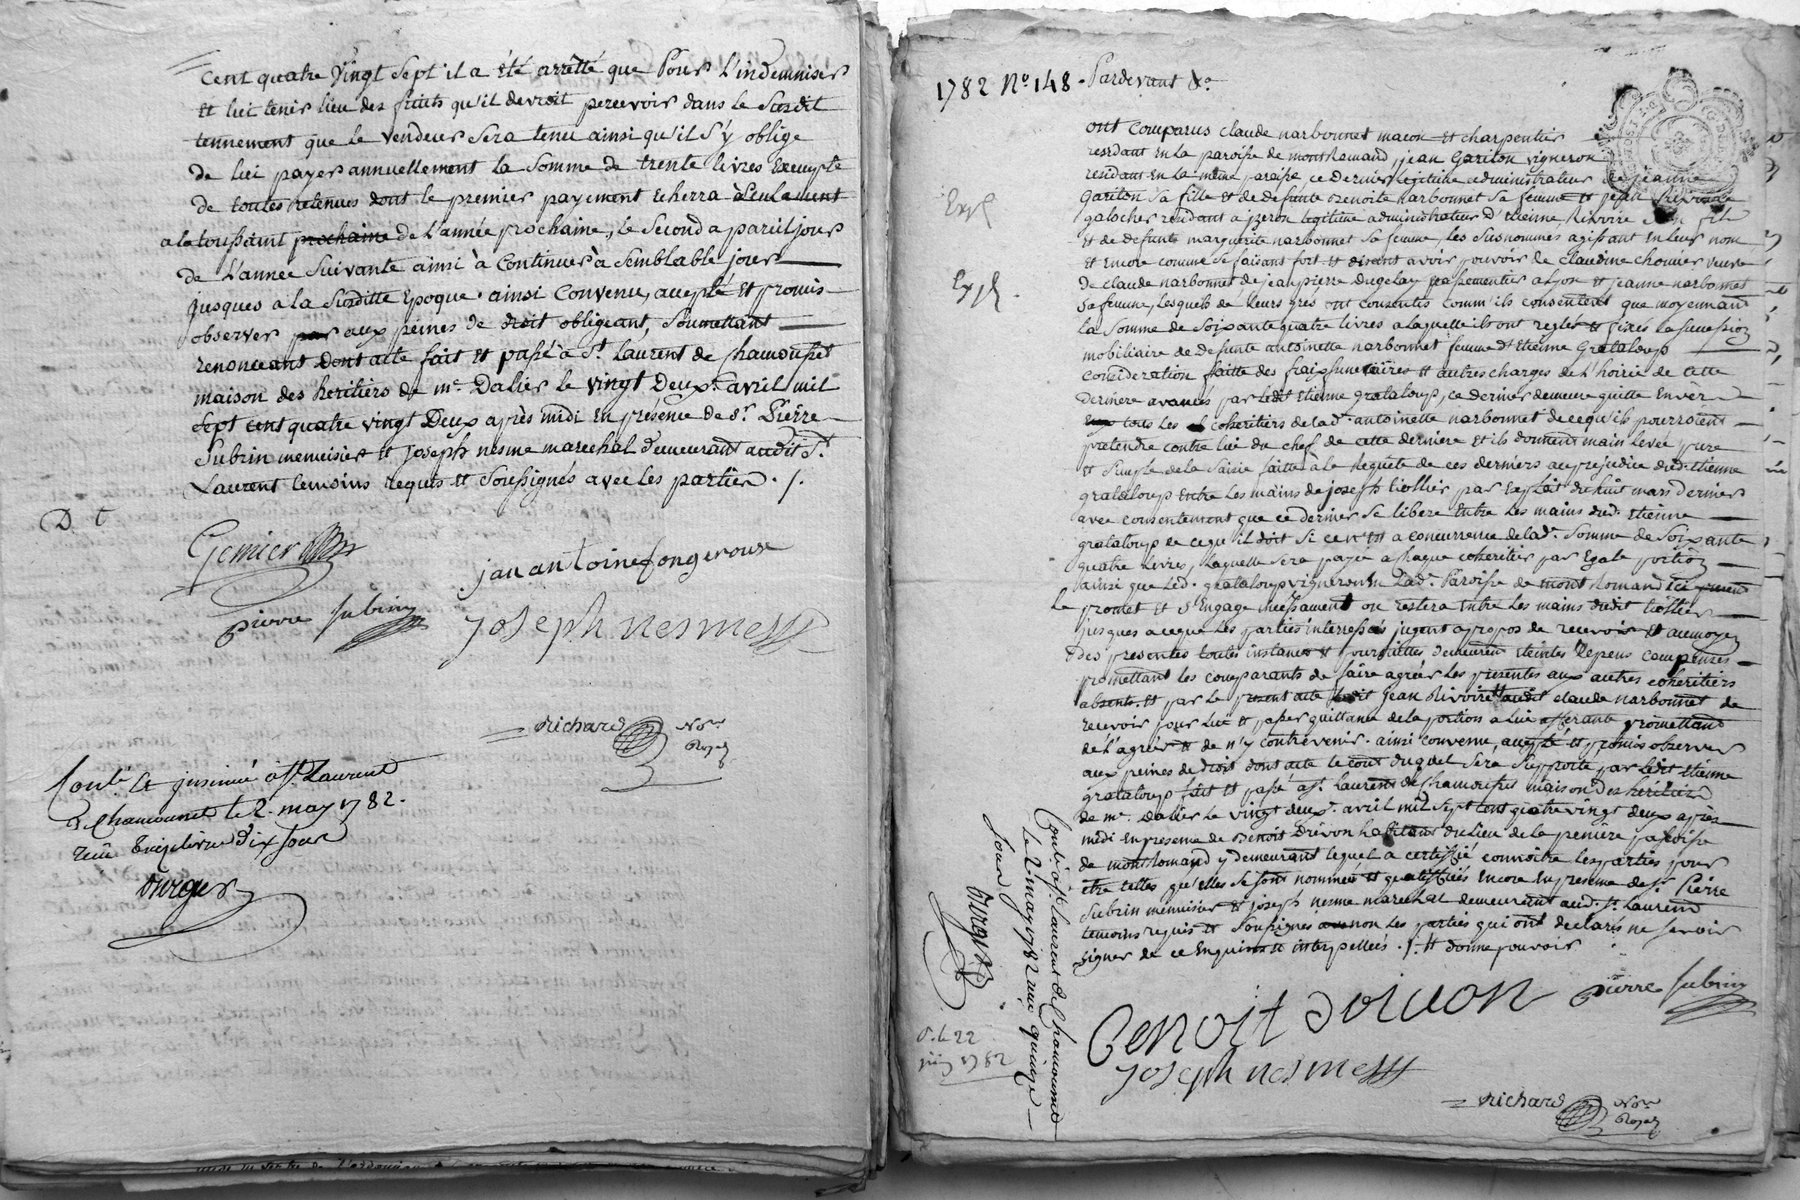 Cent quatre Vingt Sept il a été arretté que Pour L'indemniser
et lui tenir lieu des fruits qu'il devroit percevoir dans le Susdit
tennement que le vendeur Sera tenu ainsi qu'il S'y oblige
de lui payer annuellement la Somme de trente livres Exempte
de toutes retenues dont le premier payement Echerra à Seulement
a la toussaint prochaine de L'année prochaine, le Second a pareil jour
de L'année Suivante ainsi à Continuer à Semblable jour
jusques a la Susditte Epoque. ainsi Convenu, accepté et promis
observer par aux peines de droit obligeant, Soumettant
renonceant dont acte fait et passé à St. Laurent de Chamousset
maison des heritiers de me. Dalier le vingt Deux. avril mil
Sept cent quatre vingt Deux après midi En présence de Sr. Pierre
Subrin menuisier et Joseph nesme marechal demeurant audit St.
Laurent temoins requis et Soussignés avec les parties ./.
D t
Gemier
jan antoine fongeroux
pierre subrin
joseph nesme
Richard Nore
Royal
Conlé et insinué à St Laurent
de Chamousset le 2. may 1782.
reçu livres dix sous
1782 No. 148. Pardevant &a.
ont Comparus claude narbonnet macon et charpentier
residant en la paroisse de montRomand, jean Gariton vigneron
residant en la même paroisse ce dernier legitime administrateur de jeanne
Gariton Sa fille et de defunte Benoite Narbonnet Sa femme et jean Rivoire
galocher residant a jzeron legitime administrateur d'Etienne Rivoire Son fils
et de defunte marguerite narbonnet Sa femme, les Susnommés agissant en leur nom
et Encore comme Se faisant fort et disant avoir pouvoir de claudine chomier veuve
de claude narbonnet de jean pierre dugelay passementier a Lyon et jeanne narbonnet
Sa femme, lesquels de leurs grés ont consentis comm'ils consentent que moyennant
la Somme de Soixante quatre livres a laquelle ils ont reglés et fixés la Succession
mobiliaire de defunte antoinette narbonnet femme d'Etienne Grataloup
consideration faitte des frais funeraires et autres charges de l'hoirie de cette
derniere avancés par ledit Etienne grataloup, ce dernier demeure quitte Envers
tous les coheritiers de lad. antoinette narbonnet de ce qu'ils pourroient
pretendre contre lui du chef de cette derniere et ils donnent main levée pure
et Simple de la Saisie faitte à la Requete de ces derniers au prejudice dud. Etienne
grataloup Entre les mains de joseph tiollier par Exploit du huit mars dernier
avec consentement que ce dernier Se libere Entre les mains dud. Etienne
grataloup de ce qu'il doit Si ce n'est a concurrence de lad. Somme de Soixante
quatre livres, laquelle Sera payé a chaque coheritier par Egale portion
ainsi que led. grataloup vigneron en lad. Paroisse de montRomand ici present
le promet et S'Engage incessament ou restera Entre les mains dudit tiollier
jusques a ceque les parties interessés jugent a propos de recevoir et au moyen
des presentes toutes instances et poursuittes demeurent éteintes depens compensés
promettant les comparants de faire agréer les presentes aux autres coheritiers
absents. et par le present acte ledit jean Rivoire audit claude narbonnet de
recevoir pour lui et passer quittance de la portion a lui afferante promettant
de l'agréer et de n'y contrevenir. ainsi convenu, accepté et promis observer
aux peines de droit dont acte le cout duquel Sera Supporté par ledit Etienne
grataloup fait et passé a St. Laurent de chamousset maison des heritiers
de me. Dalier le vingt deux. avril mil Sept cent quatre vingt deux après
midi En presence de Benoit Drivon habitant du lieu de la paroisse
de montRomand y demeurant lequel a certiffié connoitre les parties pour
être telles qu'elles Se Sont nommées et qualiffiées encore En presence de Sr. Pierre
Subrin menuisier et joseph nesme marechal demeurant aud. St. Laurent
temoins requis et Soussignés non les parties qui ont declarés ne Savoir
signer de ce Enquis et interpellées ./. et donne pouvoir
pierre subrin
Benoit drivon
joseph nesme
Richard Nore
Royal
Expé
Expé.
Conlé a St. Laurent de Chamousset
le 2. may 1782 reçu quinze
sous
22
juin 1782